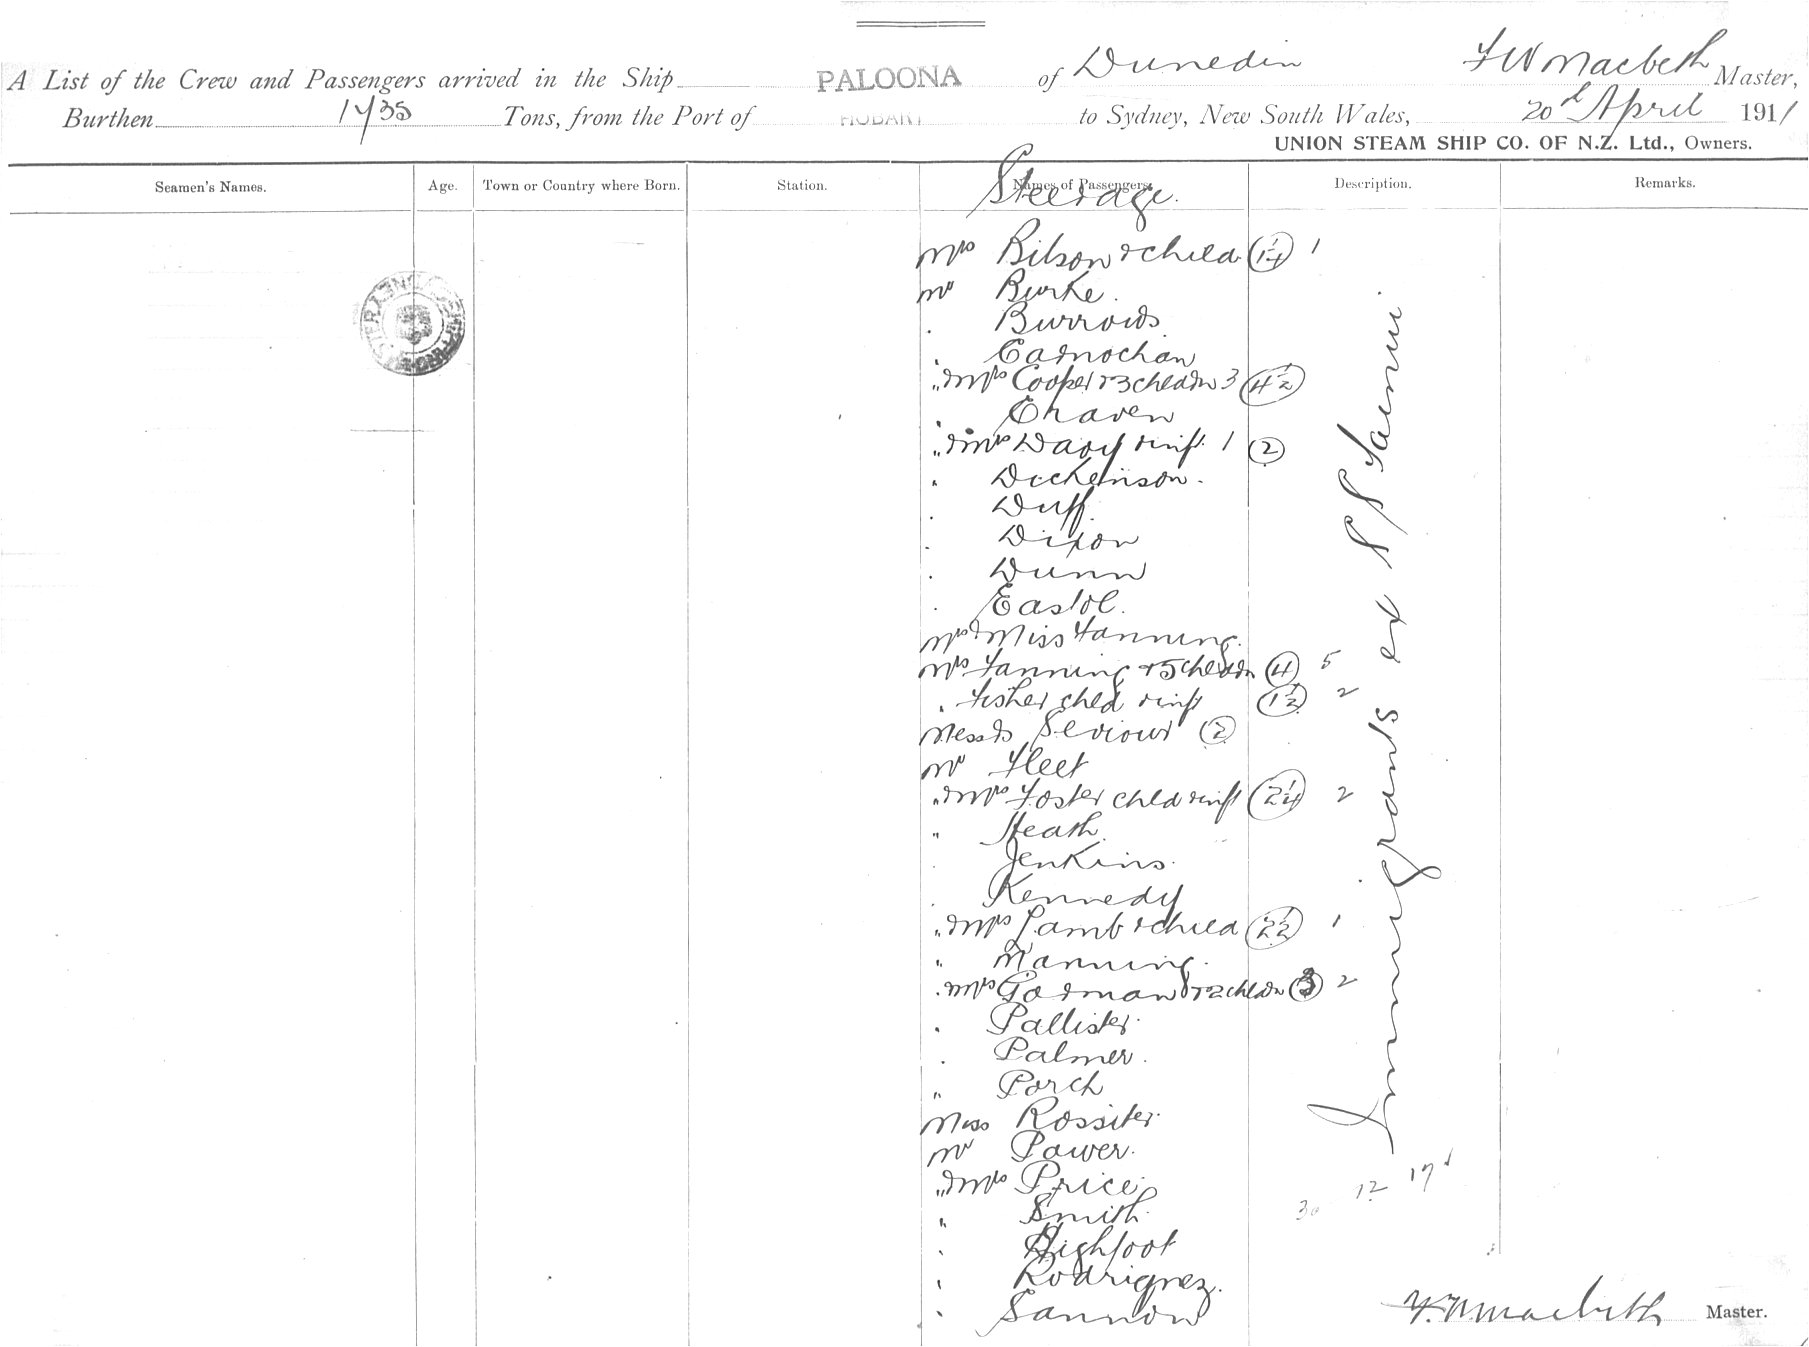 A List of the Crew and Passengers arrived in the Ship PALOONA of Dunedin F W Macbeth Master,
Burthen 1735 Tons, from the Port of HOBART to Sydney, New South Wales, 20th April 1911
UNION STEAM SHIP CO. OF N.Z. Ltd., Owners.
Seamen's Names. Age. Town or Country where Born. Station. Names of Passengers. Description. Remarks.
Steerage.
Mrs Bilson & child (1 1/4) 1
Mr Burke.
. Burrows
. Carnochan
" & Mrs Cooper & 3 childn 3 (4 1/2)
. Craven
" & Mrs Davy & inft. 1 (2)
" Dickenson.
. Duff
. Dixon
. Dunn
. Eastol.
Mrs & Miss Fanning.
Mrs Fanning & 5 childn (4) 5
" Fisher chld & inft (1 1/2) 2
Messrs Seviour (2)
Mr Fleet
" & Mrs Foster chld & inft (2 1/4) 2
" Heath.
. Jenkins.
. Kennedy
" & Mrs Lamb & child (2 1/2) 1
" Manning.
. & Mrs Godman & 2 childn (3) 2
. Pallister.
. Palmer.
" Porch
Miss Rossiter.
Mr Power.
" & Mrs Price.
" Smith.
. Highfoot
. Rodriguez.
. Sannon
Immigrants ex SS Tainui
30 12 17
F. W. Macbeth Master.